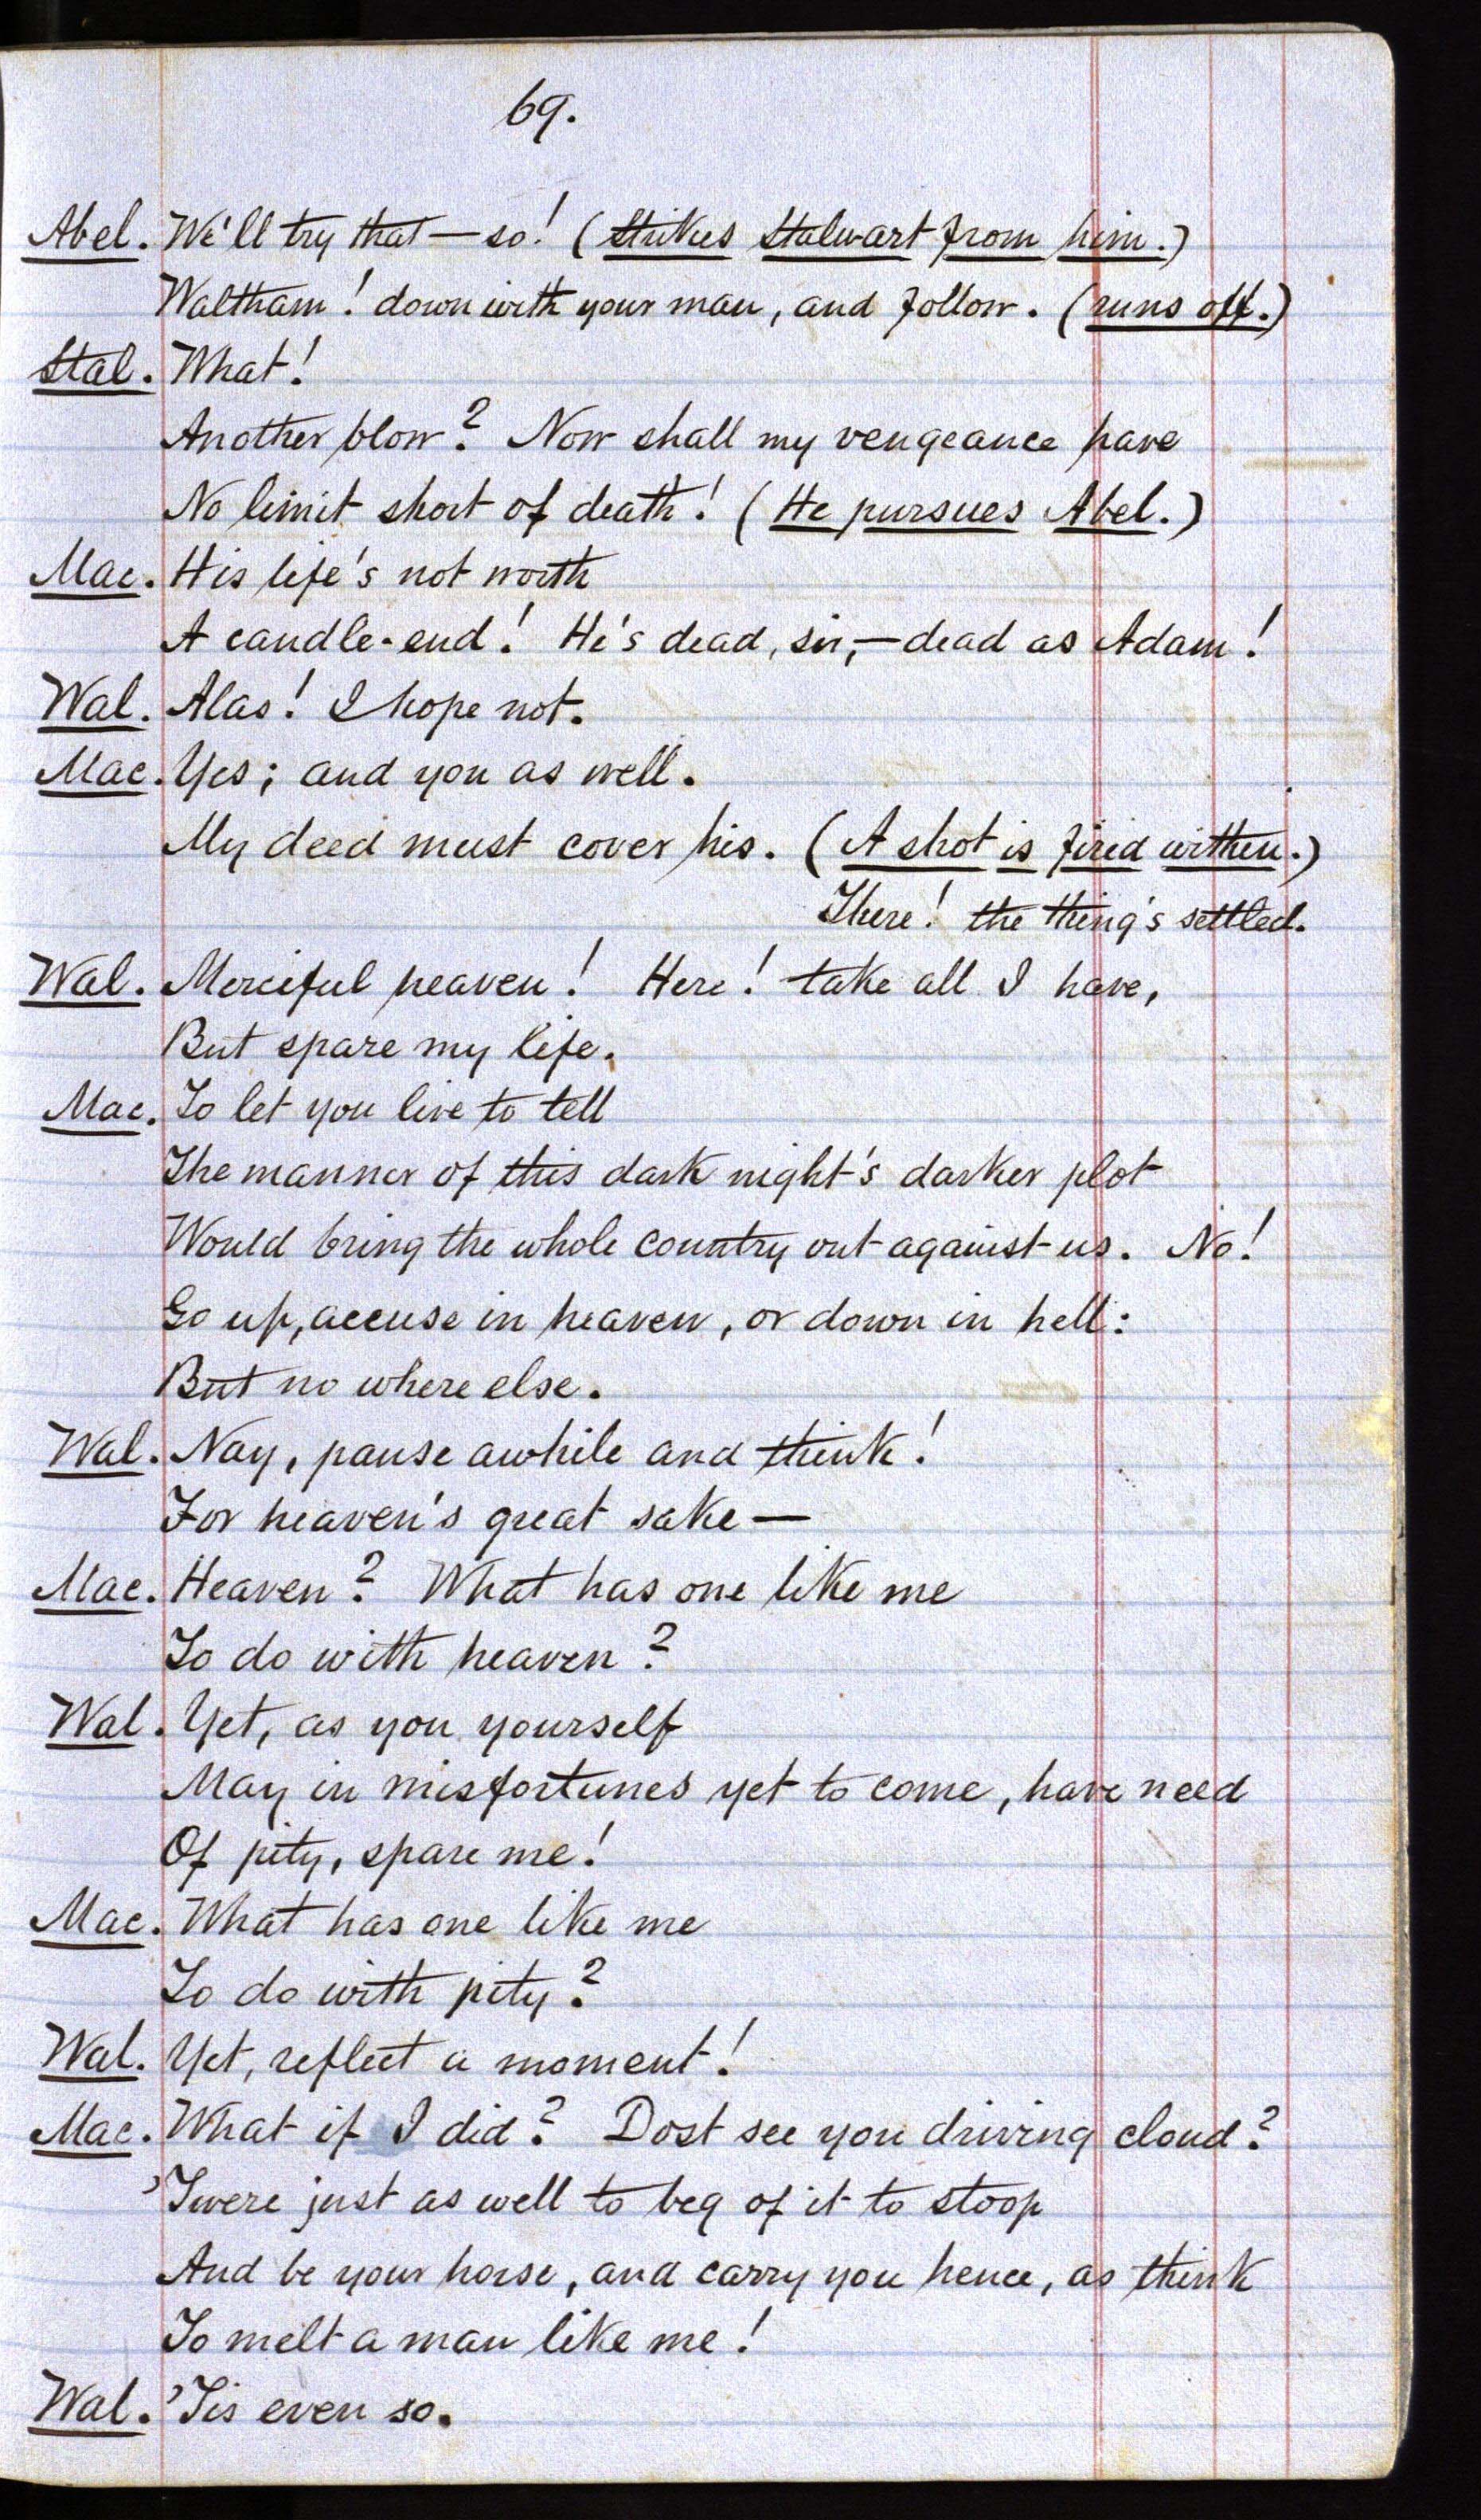 69.
Abel. We'll try that—so! (Strikes Stalwart from him.)
Waltham! down with your man, and follow. (runs off.)
Stal. What!
Another blow? Now shall my vengeance have
No limit short of death! (He pursues Abel.)
Mac. His life's not worth
A candle-end! He's dead, sir,—dead as Adam!
Wal. Alas! I hope not.
Mac. Yes; and you as well.
My deed must cover his. (A shot is fired within.)
There! the thing's settled.
Wal. Merciful heaven! Here! take all I have,
But spare my life.
Mac. To let you live to tell
The manner of this dark night's darker plot
Would bring the whole country out against us. No!
Go up, accuse in heaven, or down in hell:
But no where else.
Wal. Nay, pause awhile and think!
For heaven's great sake—
Mac. Heaven? What has one like me
To do with heaven?
Wal. Yet, as you yourself
May in misfortunes yet to come, have need
Of pity, spare me!
Mac. What has one like me
To do with pity?
Wal. Yet, reflect a moment!
Mac. What if I did? Dost see yon driving cloud?
'Twere just as well to beg of it to stoop
And be your horse, and carry you hence, as think
To melt a man like me!
Wal. 'Tis even so.